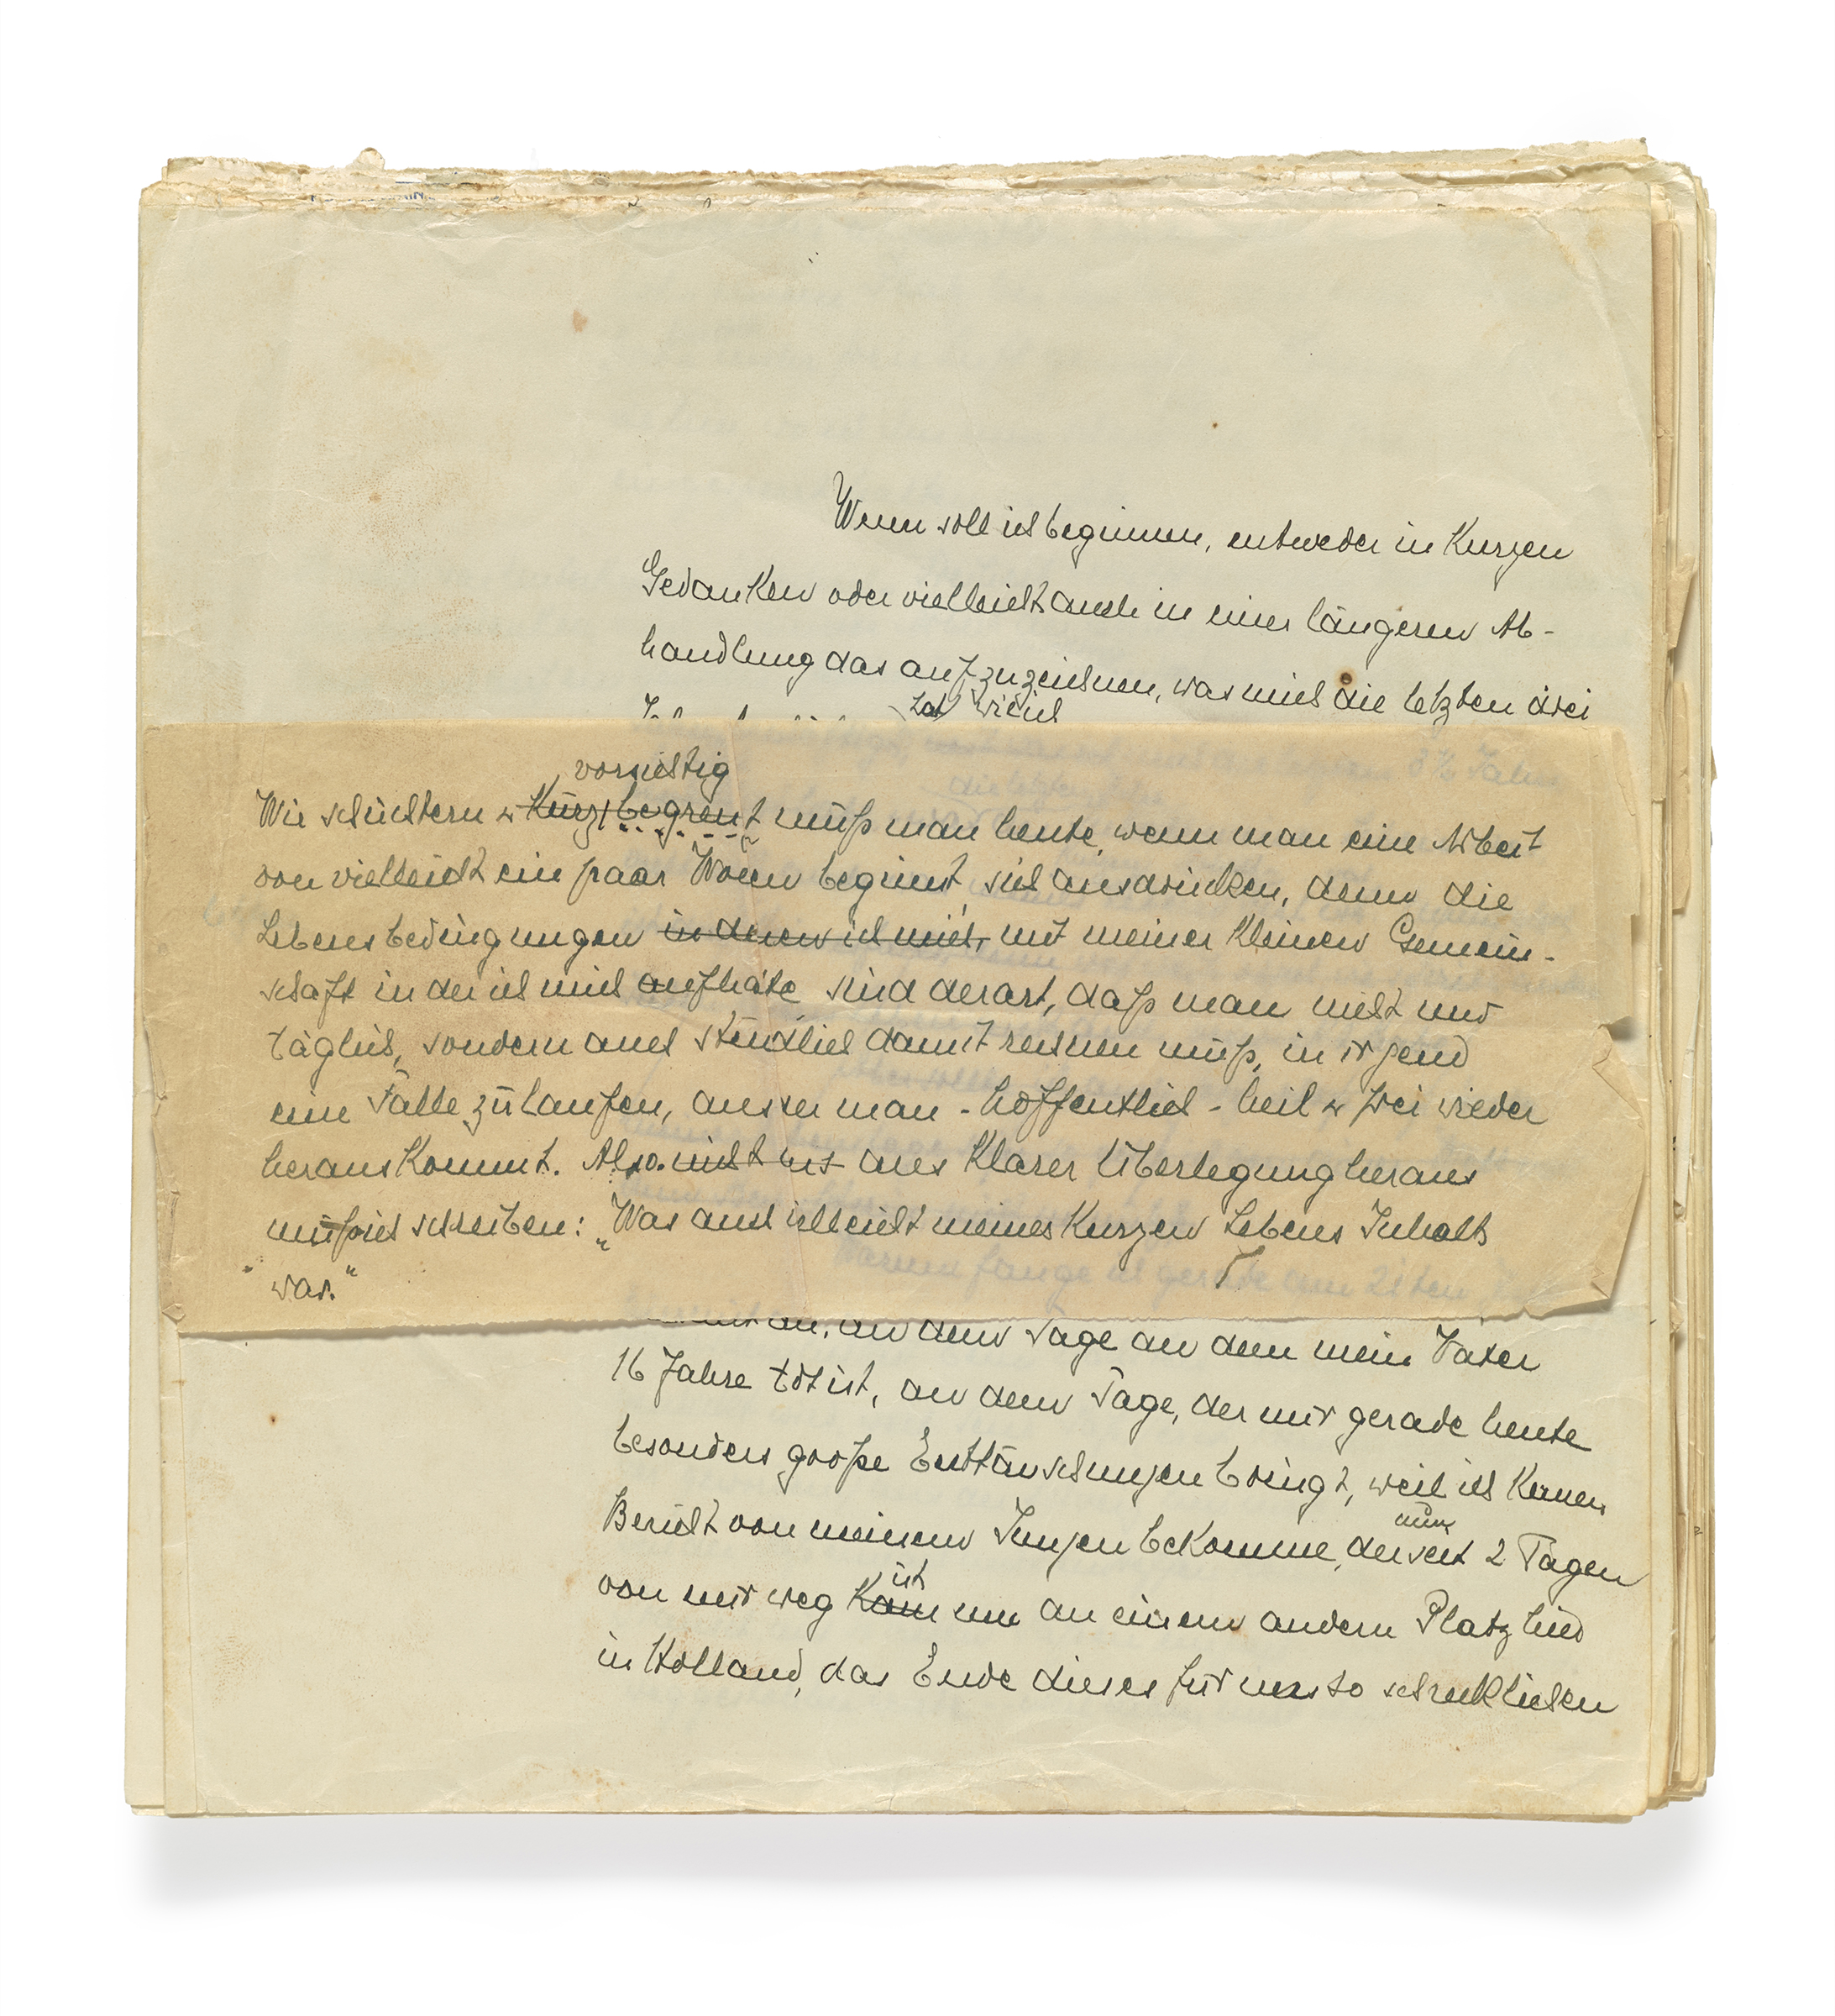 Wenn soll ich beginnen, entweder in Kurzen
Gedanken oder vielleicht auch in einer längeren Ab-
handlung das aufzuzeichnen, was mich die letzten drei
hat wieviel
vorsichtig
Wie schüchtern u. kurz begrenzt muß man heute, wenn man eine Arbeit
von vielleicht ein paar Wochen beginnt, sich ausdrücken, denn die
Lebensbedingungen in denen ich mich, mit meiner Kleinen Gemein-
schaft in der ich mich aufhalte sind derart, daß man nicht nur
täglich, sondern auch stündlich damit rechnen muß, in irgend
eine Falle zu laufen, aus der man - hoffentlich - heil u. frei wieder
heraus Kommt. Also nicht aus Klarer Überlegung heraus
muß ich schreiben: „Was auch vielleicht meines Kurzen Lebens Inhalt
war."
an, an dem Tage an dem mein Vater
16 Jahre tot ist, an dem Tage, der mir gerade heute
besonders große Enttäuschungen bringt, weil ich Keinen
nun
Bericht von meinem Jungen beKomme, der seit 2 Tagen
ist
von mir weg Kam nun an einem andern Platz
in Holland, das Ende dieses für uns so schrecklichen